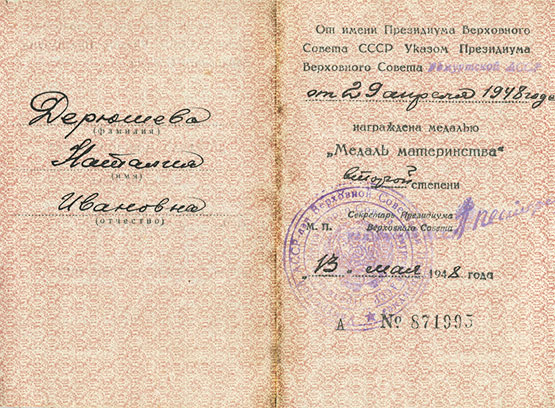 Дерюшева
(фамилия)
Наталия
(имя)
Ивановна
(отчество)
От имени Президиума Верховного
Совета СССР Указом Президиума
Верховного Совета
от 29 апреля 1948 года
награждена медалью
„Медаль материнства“
второй степени
Секретарь Президиума
М. П. Верховного Совета
„13“ мая 1948 года
А № 871995